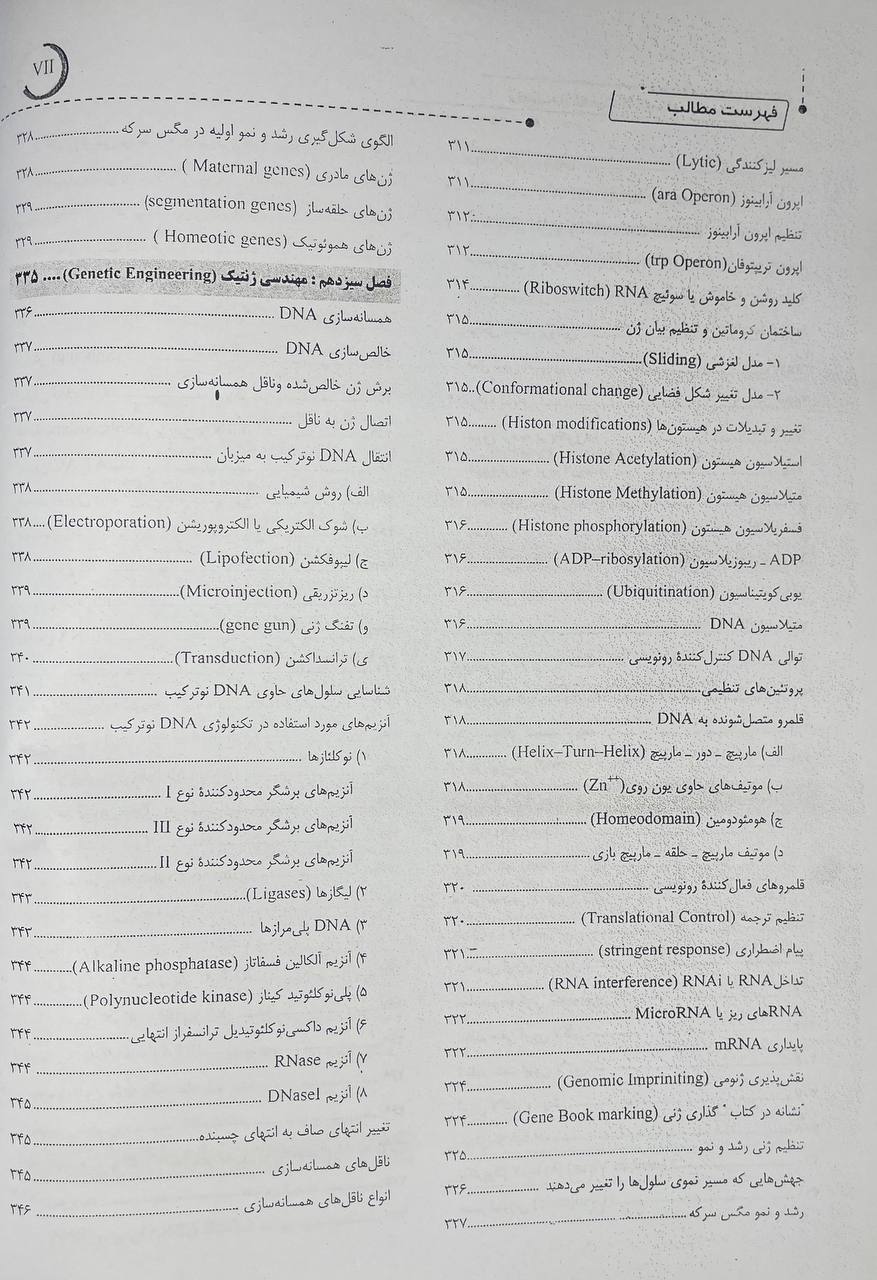 VII
فهرست مطالب
مسیر لیزکنندگی (Lytic) ........ ۳۱۱
اپرون آرابینوز (ara Operon) ........ ۳۱۱
تنظیم اپرون آرابینوز ........ ۳۱۲
اپرون تریپتوفان(trp Operon) ........ ۳۱۲
کلید روشن و خاموش یا سوئیچ RNA (Riboswitch) ........ ۳۱۴
ساختمان کروماتین و تنظیم بیان ژن ........ ۳۱۵
۱- مدل لغزشی (Sliding) ........ ۳۱۵
۲- مدل تغییر شکل فضایی (Conformational change) .. ۳۱۵
تغییر و تبدیلات در هیستون‌ها (Histon modifications) ........ ۳۱۵
استیلاسیون هیستون (Histone Acetylation) ........ ۳۱۵
متیلاسیون هیستون (Histone Methylation) ........ ۳۱۵
فسفریلاسیون هیستون (Histone phosphorylation) ........ ۳۱۶
ADP ـ ریبوزیلاسیون (ADP–ribosylation) ........ ۳۱۶
یوبی‌کویتیناسیون (Ubiquitination) ........ ۳۱۶
متیلاسیون DNA ........ ۳۱۶
توالی DNA کنترل‌کنندهٔ رونویسی ........ ۳۱۷
پروتئین‌های تنظیمی ........ ۳۱۸
قلمرو متصل‌شونده به DNA ........ ۳۱۸
الف) مارپیچ ـ دور ـ مارپیچ (Helix–Turn–Helix) ........ ۳۱۸
ب) موتیف‌های حاوی یون روی (Zn⁺⁺) ........ ۳۱۸
ج) هومئودومین (Homeodomain) ........ ۳۱۹
د) موتیف مارپیچ ـ حلقه ـ مارپیچ بازی ........ ۳۱۹
قلمروهای فعال‌کنندهٔ رونویسی ........ ۳۲۰
تنظیم ترجمه (Translational Control) ........ ۳۲۰
پیام اضطراری (stringent response) ........ ۳۲۱
تداخل RNA یا RNAi (RNA interference) ........ ۳۲۱
RNAهای ریز یا MicroRNA ........ ۳۲۲
پایداری mRNA ........ ۳۲۲
نقش‌پذیری ژنومی (Genomic Impriniting) ........ ۳۲۴
"نشانه در کتاب" گذاری ژنی (Gene Book marking) ........ ۳۲۴
تنظیم ژنی رشد و نمو ........ ۳۲۵
جهش‌هایی که مسیر نموی سلول‌ها را تغییر می‌دهند ........ ۳۲۶
رشد و نمو مگس سرکه ........ ۳۲۷
الگوی شکل‌گیری رشد و نمو اولیه در مگس سرکه ........ ۳۲۸
ژن‌های مادری (Maternal genes) ........ ۳۲۸
ژن‌های حلقه‌ساز (segmentation genes) ........ ۳۲۹
ژن‌های هموئوتیک (Homeotic genes) ........ ۳۲۹
فصل سیزدهم : مهندسی ژنتیک (Genetic Engineering) .... ۳۳۵
همسانه‌سازی DNA ........ ۳۳۶
خالص‌سازی DNA ........ ۳۳۷
برش ژن خالص‌شده وناقل همسانه‌سازی ........ ۳۳۷
اتصال ژن به ناقل ........ ۳۳۷
انتقال DNA نوترکیب به میزبان ........ ۳۳۷
الف) روش شیمیایی ........ ۳۳۸
ب) شوک الکتریکی یا الکتروپوریشن (Electroporation) .... ۳۳۸
ج) لیپوفکشن (Lipofection) ........ ۳۳۸
د) ریزتزریقی (Microinjection) ........ ۳۳۹
و) تفنگ ژنی (gene gun) ........ ۳۳۹
ی) ترانسداکشن (Transduction) ........ ۳۴۰
شناسایی سلول‌های حاوی DNA نوترکیب ........ ۳۴۱
آنزیم‌های مورد استفاده در تکنولوژی DNA نوترکیب ........ ۳۴۲
۱) نوکلئازها ........ ۳۴۲
آنزیم‌های برشگر محدودکنندهٔ نوع I ........ ۳۴۲
آنزیم‌های برشگر محدودکنندهٔ نوع III ........ ۳۴۲
آنزیم‌های برشگر محدودکنندهٔ نوع II ........ ۳۴۲
۲) لیگازها (Ligases) ........ ۳۴۳
۳) DNA پلی‌مرازها ........ ۳۴۳
۴) آنزیم آلکالین فسفاتاز (Alkaline phosphatase) ........ ۳۴۴
۵) پلی‌نوکلئوتید کیناز (Polynucleotide kinase) ........ ۳۴۴
۶) آنزیم داکسی‌نوکلئوتیدیل ترانسفراز انتهایی ........ ۳۴۴
۷) آنزیم RNase ........ ۳۴۴
۸) آنزیم DNaseI ........ ۳۴۵
تغییر انتهای صاف به انتهای چسبنده ........ ۳۴۵
ناقل‌های همسانه‌سازی ........ ۳۴۵
انواع ناقل‌های همسانه‌سازی ........ ۳۴۶